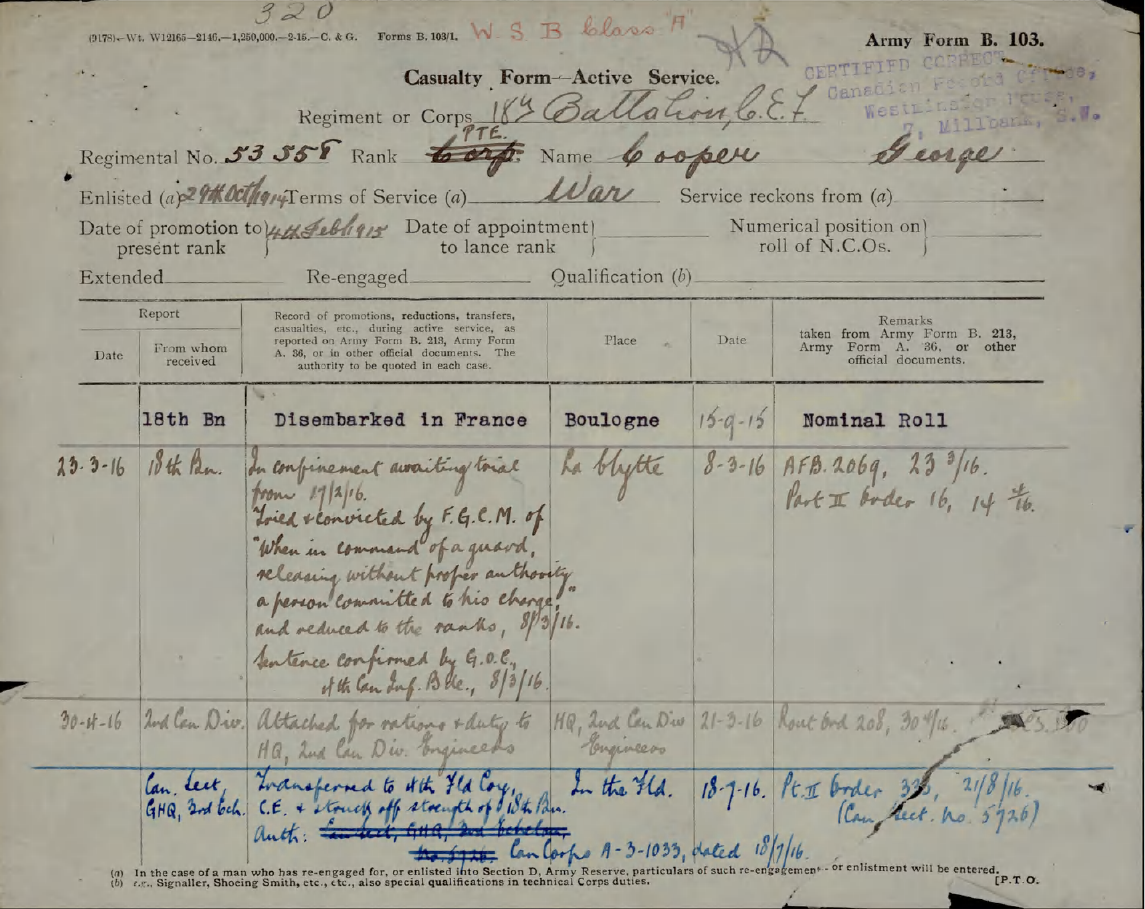 320
(9178)—Wt. W12165—2146.—1,250,000.—2-15.—C. & G. Forms B. 103/1. W S B Class "A"
Army Form B. 103.
CERTIFIED CORRECT
Canadian Record Office,
Westminster House,
7, Millbank, S.W.
Casualty Form—Active Service.
Regiment or Corps 18th Battalion, C.E.F.
PTE.
Regimental No. 53558 Rank Corp. Name Cooper George
Enlisted (a) 29th Oct 1914 Terms of Service (a) War Service reckons from (a)
Date of promotion to present rank 4th Feb 1915 Date of appointment to lance rank Numerical position on roll of N.C.Os.
Extended Re-engaged Qualification (b)
Report
Date
From whom received
Record of promotions, reductions, transfers, casualties, etc., during active service, as reported on Army Form B. 213, Army Form A. 36, or in other official documents. The authority to be quoted in each case.
Place
Date
Remarks
taken from Army Form B. 213, Army Form A. 36, or other official documents.
18th Bn Disembarked in France Boulogne 15-9-15 Nominal Roll
23-3-16 18th Bn. In confinement awaiting trial La Clytte 8-3-16 AFB. 2069, 23 3/16.
from 17/2/16. Part II Order 16, 14 4/16.
Tried & convicted by F.G.C.M. of
"When in command of a guard,
releasing without proper authority
a person committed to his charge,"
and reduced to the ranks, 8/3/16.
Sentence confirmed by G.O.C.,
4th Can Inf. Bde., 8/3/16.
30-4-16 2nd Can Div. Attached for rations & duty to HQ, 2nd Can Div 21-3-16 Rout Ord 208, 30 4/16.
HQ, 2nd Can Div. Engineers Engineers
Can. Sect, Transferred to 4th Fld Coy, In the Fld. 18-7-16. Pt. II Order 21/8/16.
GHQ, 3rd Ech. C.E. & struck off strength of 18th Bn. (Can Sect. No. 5926)
Auth: Can Sect, GHQ, 3rd Echelon,
No. 5926. Can Corps A-3-1033, dated 18/7/16.
(a) In the case of a man who has re-engaged for, or enlisted into Section D, Army Reserve, particulars of such re-engagement or enlistment will be entered.
(b) e.g., Signaller, Shoeing Smith, etc., etc., also special qualifications in technical Corps duties. [P.T.O.